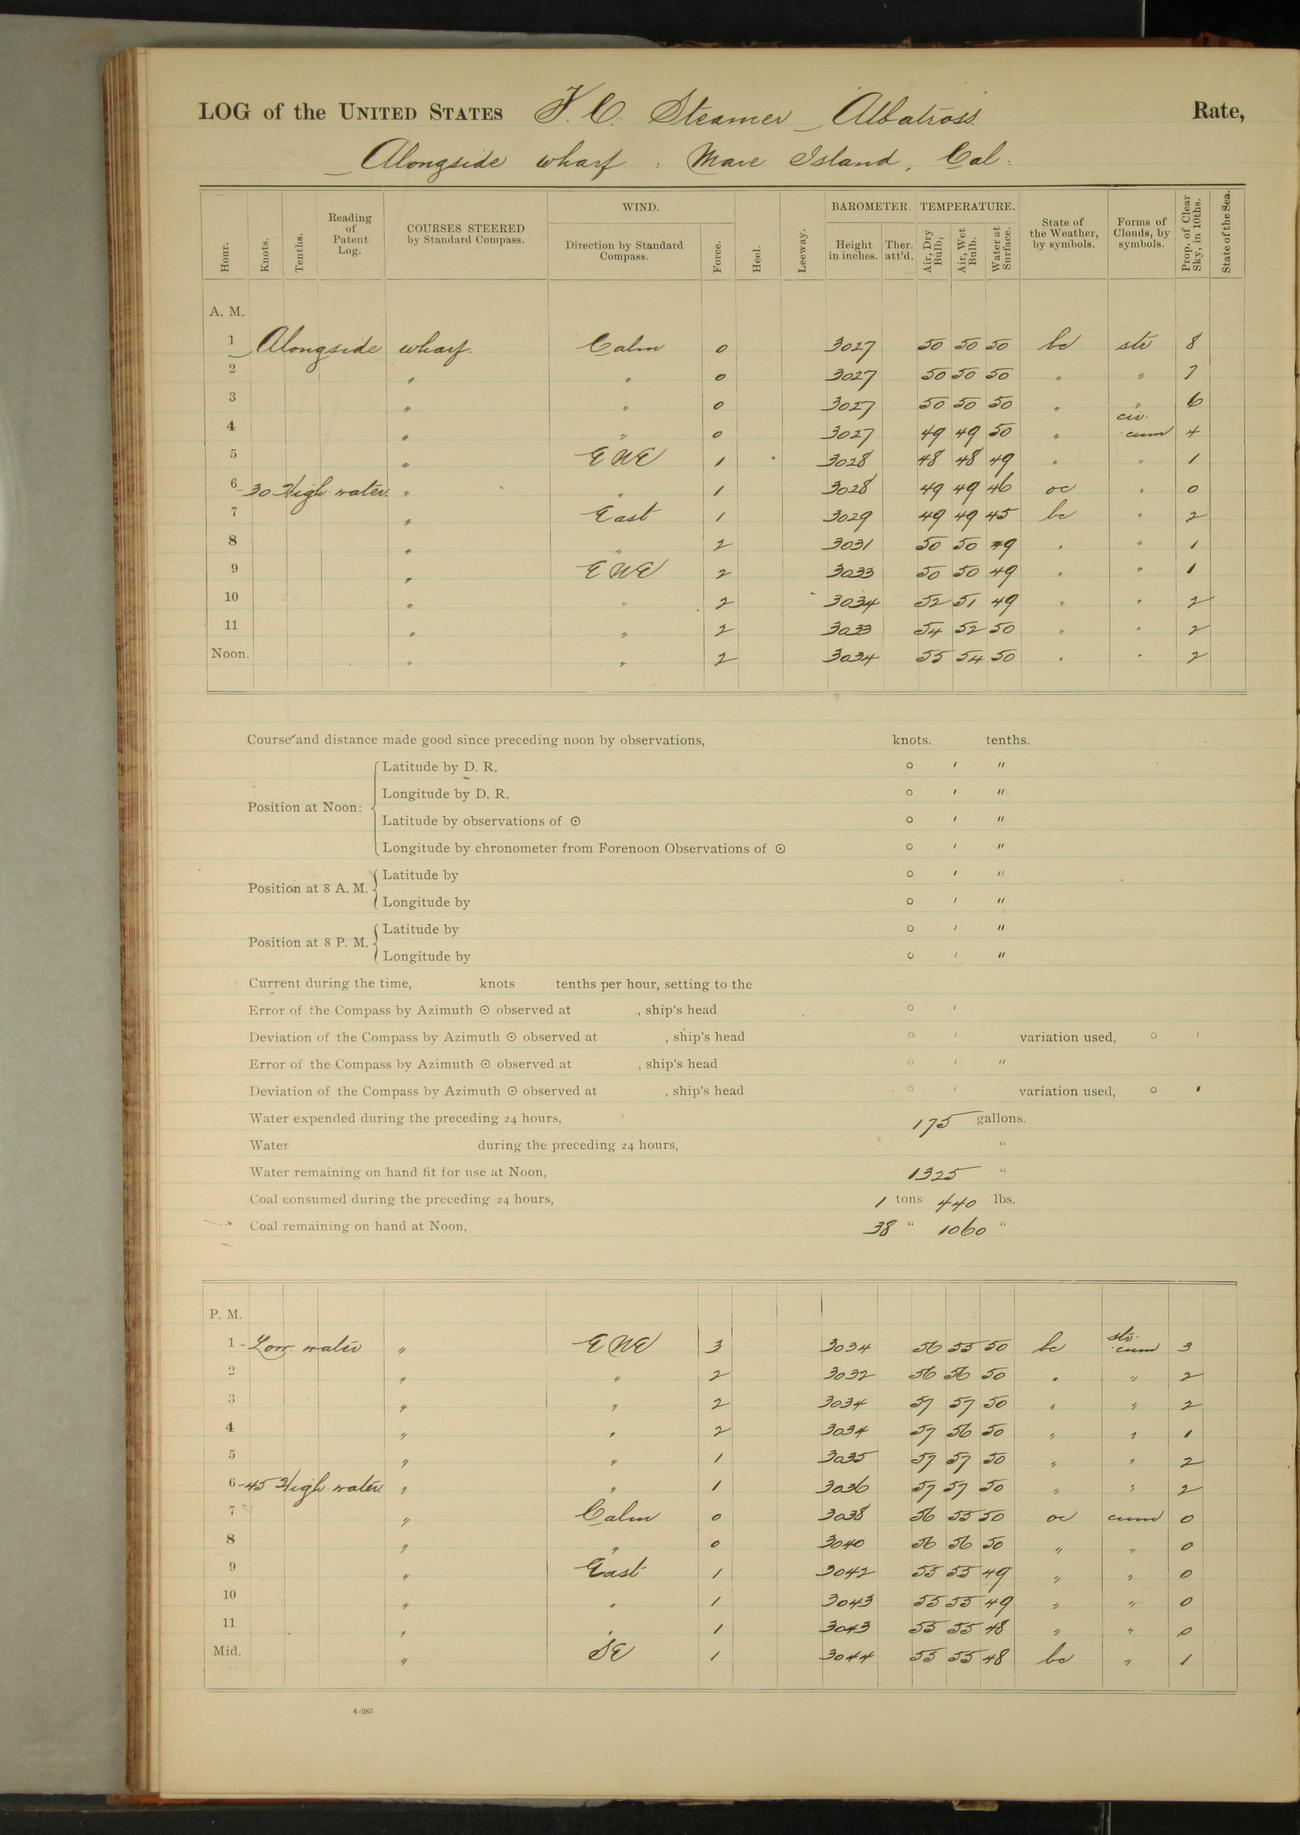 LOG of the UNITED STATES F. C. Steamer Albatross Rate,
Alongside wharf : Mare Island, Cal:
Hour. Knots. Tenths. Reading of Patent Log. COURSES STEERED by Standard Compass. WIND. Direction by Standard Compass. Force. Heel. Leeway. BAROMETER. Height in inches. Ther. att'd. TEMPERATURE. Air, Dry Bulb, Air, Wet Bulb. Water at Surface. State of the Weather, by symbols. Forms of Clouds, by symbols. Prop. of Clear Sky, in 10ths. State of the Sea.
A. M.
1 Alongside wharf. Calm 0 3027 50 50 50 bc str 8
2 " " 0 3027 50 50 50 " " 7
3 " " 0 3027 50 50 50 " " 6
4 " " 0 3027 49 49 50 " cir. cum 4
5 " ENE 1 3028 48 48 49 " " 1
6 30 High water " " 1 3028 49 49 46 oc " 0
7 " East 1 3029 49 49 45 bc " 2
8 " " 2 3031 50 50 49 " " 1
9 " ENE 2 3033 50 50 49 " " 1
10 " " 2 3034 52 51 49 " " 2
11 " " 2 3033 54 52 50 " " 2
Noon. " " 2 3034 55 54 50 " " 2
Course and distance made good since preceding noon by observations, knots. tenths.
Position at Noon:
Latitude by D. R. ° ′ ″
Longitude by D. R. ° ′ ″
Latitude by observations of ⊙ ° ′ ″
Longitude by chronometer from Forenoon Observations of ⊙ ° ′ ″
Position at 8 A. M.
Latitude by ° ′ ″
Longitude by ° ′ ″
Position at 8 P. M.
Latitude by ° ′ ″
Longitude by ° ′ ″
Current during the time, knots tenths per hour, setting to the
Error of the Compass by Azimuth ⊙ observed at , ship's head ° ′
Deviation of the Compass by Azimuth ⊙ observed at , ship's head ° ′ variation used, ° ′
Error of the Compass by Azimuth ⊙ observed at , ship's head ° ′ ″
Deviation of the Compass by Azimuth ⊙ observed at , ship's head ° ′ variation used, ° ′
Water expended during the preceding 24 hours, 175 gallons.
Water during the preceding 24 hours, "
Water remaining on hand fit for use at Noon, 1325 "
Coal consumed during the preceding 24 hours, 1 tons 440 lbs.
Coal remaining on hand at Noon, 38 " 1060 "
P. M.
1 - Low water " ENE 3 3034 56 55 50 bc str. cum 3
2 " " 2 3032 56 56 50 " " 2
3 " " 2 3034 57 57 50 " " 2
4 " " 2 3034 57 56 50 " " 1
5 " " 1 3035 57 57 50 " " 2
6-45 High water " " 1 3036 57 57 50 " " 2
7 " Calm 0 3038 56 55 50 oc cum 0
8 " " 0 3040 56 56 50 " " 0
9 " East 1 3042 55 55 49 " " 0
10 " " 1 3043 55 55 49 " " 0
11 " " 1 3043 55 55 48 " " 0
Mid. " SE 1 3044 55 55 48 bc " 1
4-265